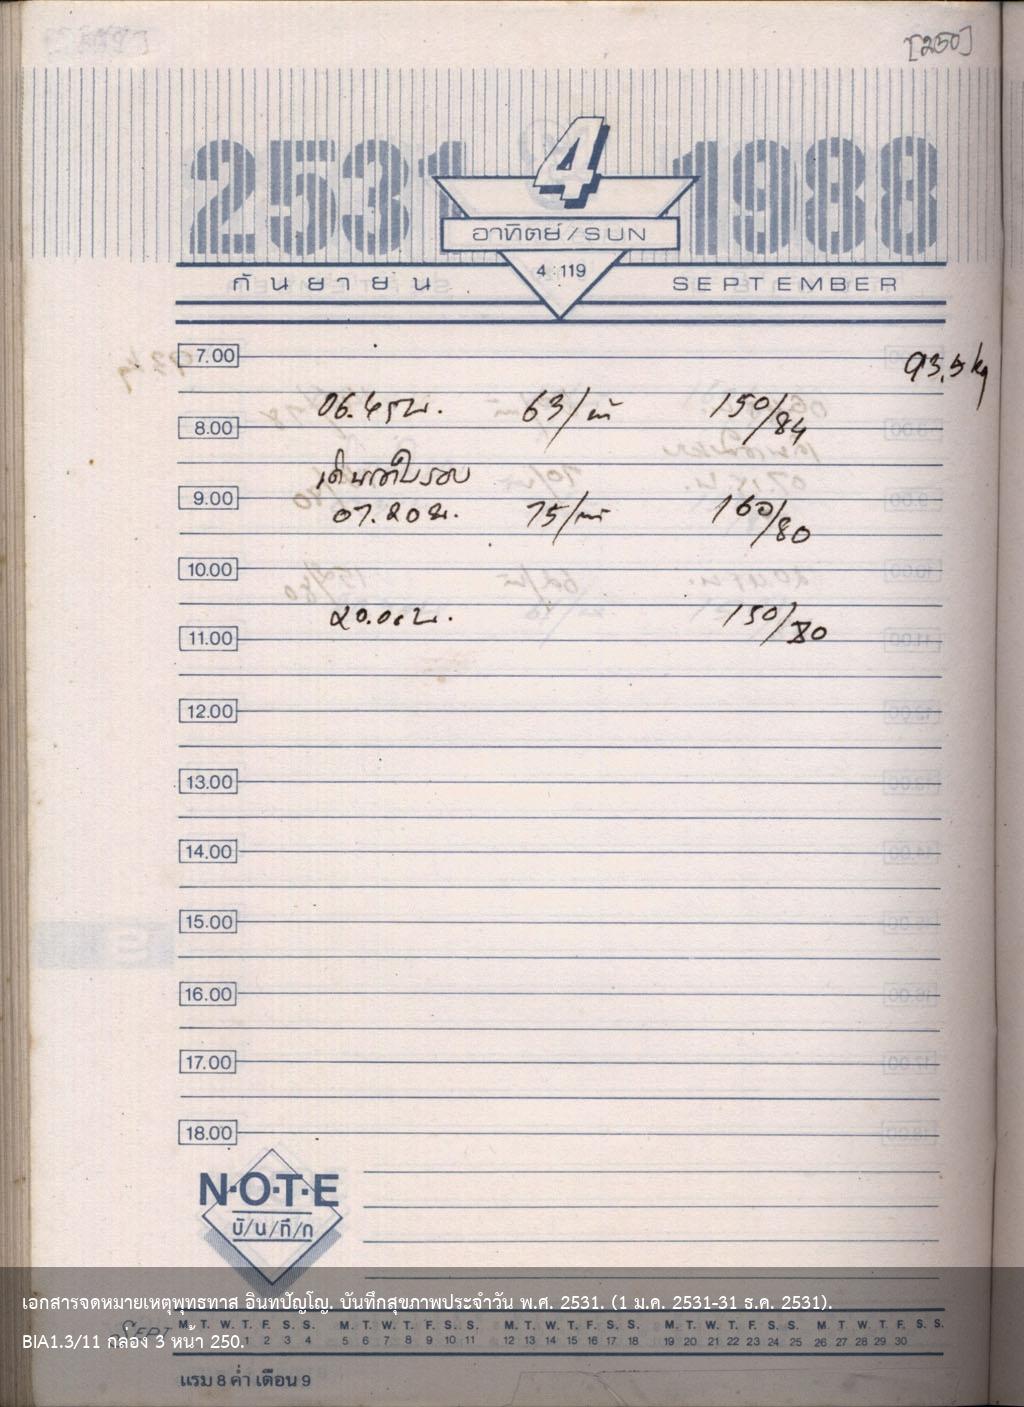 [250]
2531 4 1988
อาทิตย์/SUN
4 : 119
กันยายน SEPTEMBER
7.00
93.5 kg
06.45 น. 63/นที 150/84
8.00
9.00
07.20 น. 75/นที 160/80
10.00
20.0 น. 150/80
11.00
12.00
13.00
14.00
15.00
16.00
17.00
18.00
N·O·T·E
บั/น/ทึ/ก
เอกสารจดหมายเหตุพุทธทาส อินทปัญโญ. บันทึกสุขภาพประจำวัน พ.ศ. 2531. (1 ม.ค. 2531-31 ธ.ค. 2531).
SEPT M. T. W. T. F. S. S. M. T. W. T. F. S. S. M. T. W. T. F. S. S. M. T. W. T. F. S. S. M. T. W. T. F. S. S.
1 2 3 4 5 6 7 8 9 10 11 12 13 14 15 16 17 18 19 20 21 22 23 24 25 26 27 28 29 30
BIA1.3/11 กล่อง 3 หน้า 250.
แรม 8 ค่ำ เดือน 9